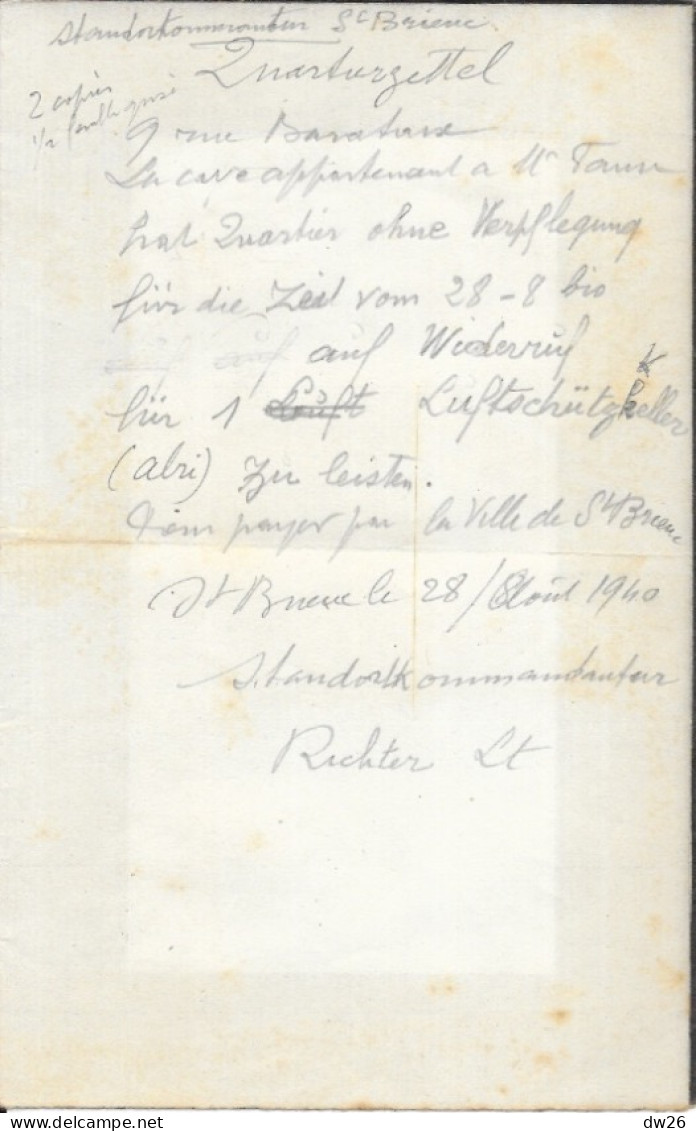 Standortkommandantur St Brieuc
Quartierzettel
2 copies
1/2 feuille
9 rue Baratoux
La cave appartenant a Mr
hat Quartier ohne Verpflegung
für die Zeit vom 28-8 bis
auf auf auf Widerruf
für 1 Luft Luftschützkeller
(abri) zu leisten.
payer par la Ville de St Brieuc
St Brieuc le 28/8 Août 1940
Standortkommandantur
Richter Lt
dw26